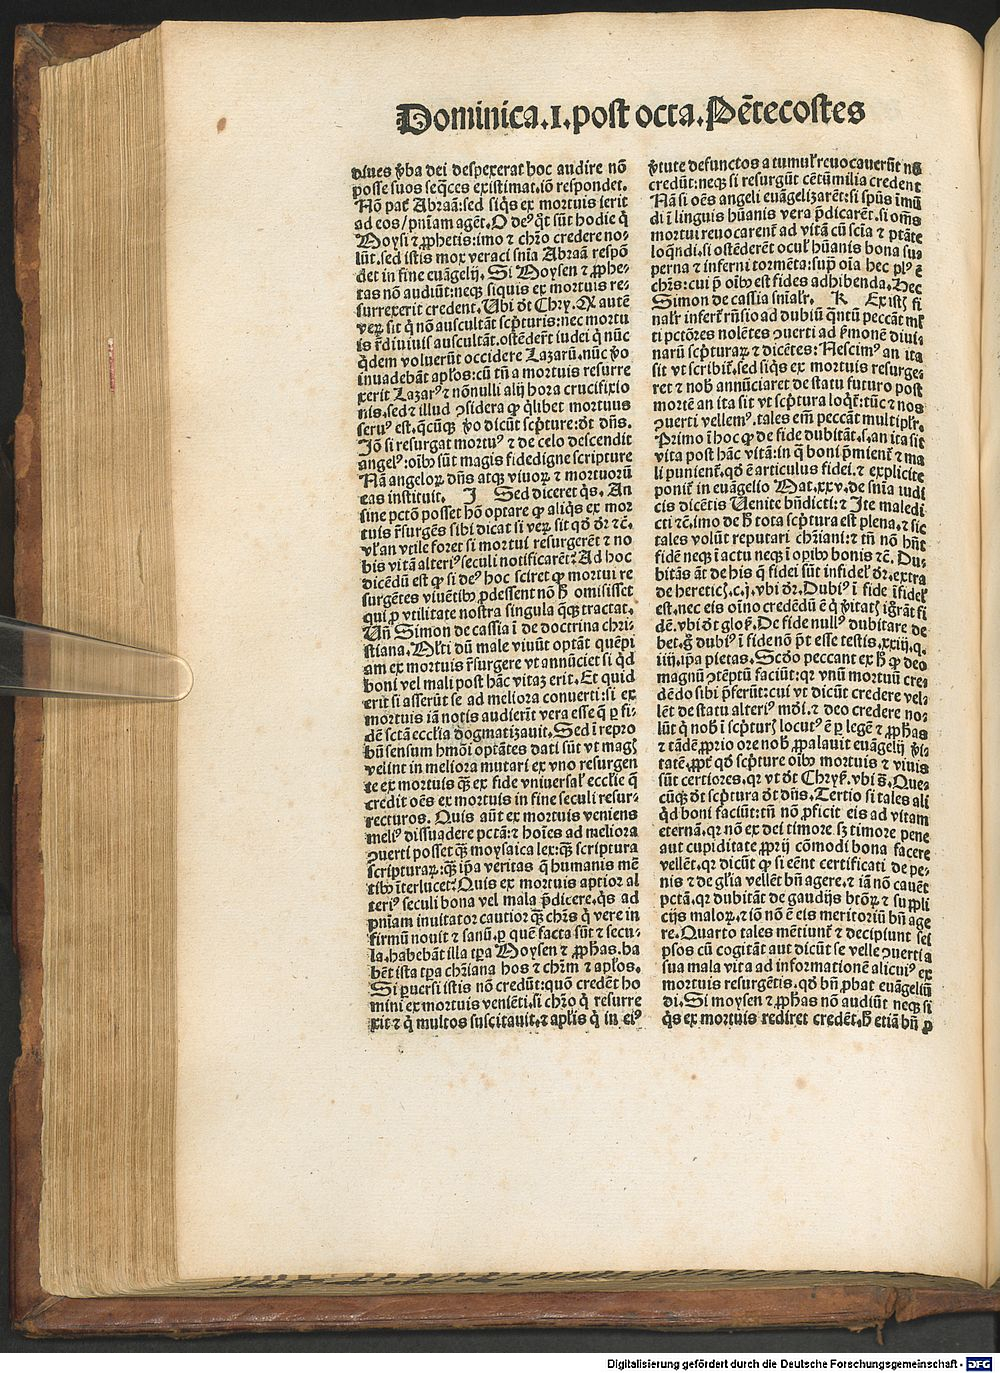 Dominica.I.post octa.Pēтecostes
diues ꝟba dei despexerat hoc audire nō
posse suos seq̄ces existimat.iō respondet.
Nō pat͛ Abraā:sed siq̇s ex mortuis ierit
ad eos/pn̄iam agēt. O deꝰ q̇t sūt hodie q̇
Moysi ⁊ ꝓphetis:imo ⁊ ch͛ro credere no⸗
lūt.sed istis mox veraci sn̄ia Abraā respō
det in fine euāgelij. Si Moysen ⁊ ꝓphe⸗
tas nō audiūt:neqꝫ siquis ex mortuis re⸗
surrexerit credent. Ubi ð͛t Chry. Qꝫ autē
veꝝ sit q̇ nō auscultāt scp̄turis:nec mortu
is r̄diuiuis auscultāt.ostēder̄t iudei q̇ nūc
q̇dem voluerūt occidere Lazarū.nūc ꝟo
inuadebāt apl̄os:cū tn̄ a mortuis resurre
xerit Lazarꝰ ⁊ nōnulli alij hora crucifixio
nis.sed ⁊ illud ꝯsidera ꝙ q̇libet mortuus
seruꝰ est.q̄cūqꝫ ꝟo dicūt scp̄ture:ð͛t dn̄s.
Jō si resurgat mortuꝰ ⁊ de celo descendit
angelꝰ:oībꝰ sūt magis fidedigne scripture
Nā angeloꝝ dn̄s atqꝫ viuoꝝ ⁊ mortuorū
eas instituit. J Sed diceret q̇s. An
sine pctō posset hō optare ꝙ aliq̇s ex mor
tuis r̄surgēs sibi dicat si veꝝ sit qð ðr̄ ⁊c̄.
vl̄ an vtile foret si mortui resurgerēt ⁊ no
bis vitā alteriꝰ seculi notificarēt? Ad hoc
dicēdū est ꝙ si deꝰ hoc sciret ꝙ mortui re
surgētes viuētibꝰ ꝓdessent nō h̄ omisisset
qui ꝓ vtilitate nostra singula q̄qꝫ tractat.
Un̄ Simon de cassia ī de doctrina chri⸗
stiana. Mĺti dū male viuūt optāt quēpi
am ex mortuis r̄surgere vt annūciet si q̇d
boni vel mali post hāc vitaꝫ erit. Et quid
erit si asserūt se ad meliora conuerti:si ex
mortuis iā notis audierīt vera esse q̄ ꝑ fi⸗
dē sctā eccl̄ia dogmatizauit. Sed ī repro
bū sensum hm̄ōi optātes dati sūt vt magꝭ
velint in meliora mutari ex vno resurgen
te ex mortuis q̄ꝫ ex fide vniuersal͛ eccl̄ie q̄
credit oēs ex mortuis in fine seculi resur⸗
recturos. Quis aūt ex mortuis veniens
meliꝰ dissuadere pctā:⁊ hoīes ad meliora
ꝯuerti posset q̄ꝫ moysaica lex:q̄ꝫ scriptura
scripturaꝝ:q̄ꝫ ip̄a veritas q̄ humanis mē
tibꝰ īterlucet? Quis ex mortuis aptior al
teriꝰ seculi bona vel mala p̄dicere.q̇s ad
pn̄iam inuitator cautior q̄ꝫ ch͛rs q̇ vere in
firmū nouit ⁊ sanū.ꝑ quē facta sūt ⁊ secu⸗
la.habebāt illa tp̄a Moysen ⁊ ꝓphas.ha
bēt ista tp̄a ch͛riana hos ⁊ ch͛rm ⁊ apl̄os.
Si ꝑuersi istis nō credūt:quō credēt ho
mini ex mortuis veniēti.si ch͛ro q̇ resurre
xit ⁊ q̇ multos suscitauit.⁊ apl̄is q̇ in eiꝰ
ꝟtute defunctos a tumul͛ reuocauerūt nō
credūt:neqꝫ si resurgūt cētūmilia credent
Nā si oēs angeli euāgelizarēt:si sp̄us īmū
di ī linguis hūanis vera p̄dicarēt.si om̄s
mortui reuocarent͛ ad vitā cū scīa ⁊ ptāte
loq̄ndi.si ostēderēt ocul͛ hūanis bona su⸗
perna ⁊ inferni tormēta:supͣ oīa hec plꝰ ē
ch͛rs:cui p̄ oībꝰ est fides adhibenda. Hec
Simon de cassia sn̄ialr̄. K Ex istꝭ fi
nalr̄ infert͛ rn̄sio ad dubiū q̄ntū peccāt ml̄
ti pctōres nolētes ꝯuerti ad ẜmonē diui⸗
narū scp̄turaꝝ ⁊ dicētes: Nescimꝰ an ita
sit vt scribit͛.sed siq̇s ex mortuis resurge⸗
ret ⁊ nob̄ annūciaret de statu futuro post
mortē an ita sit vt scp̄tura loq̇t͛:tūc ⁊ nos
ꝯuerti vellemꝰ.tales em̄ peccāt multiplr̄.
Primo ī hoc ꝙ de fide dubitāt.s.an ita sit
vita post hāc vitā:in q̄ boni p̄mient͛ ⁊ ma
li punient͛.qð ē articulus fidei.⁊ explicite
ponit͛ in euāgelio Mat.xxv.de sn̄ia iudi
cis dicētis Uenite bn̄dicti: ⁊ Ite maledi
cti ⁊c̄.imo de h̄ tota scp̄tura est plena.⁊ sic
tales volūt reputari ch͛riani:⁊ tn̄ nō hn̄t
fidē neqꝫ ī actu neqꝫ ī oꝑibꝰ bonis ⁊c̄. Du⸗
bitās āt de his q̄ fidei sūt infidel͛ ðr̄.extra
de hereticꝭ.c.j.vbi ðr̄. Dubiꝰ ī fide īfidel͛
est.nec eis oīno credēdū ē q̇ ꝟitatꝫ igr̄āt fi
dē.vbi ð͛t glo͛. De fide nullꝰ dubitare de
bet.g̊ dubiꝰ ī fide nō pōt esse testis.xxiij.q.
iiij.ip̄a pietas. Scðo peccant ex h̄ ꝙ deo
magnū ꝯtēptū faciūt:qꝛ vnū mortuū cre⸗
dēdo sibi p̄ferūt:cui vt dicūt credere vel⸗
lēt de statu alteriꝰ mūdi.⁊ deo credere no⸗
lūt q̇ nob̄ ī scp̄turꝭ locutꝰ ē ꝑ legē ⁊ ꝓphas
⁊ tādē ꝓprio ore nob̄ ꝓpalauit euāgelij ꝟi⸗
tatē.ꝓpt͛ qð scp̄ture oībꝰ mortuis ⁊ viuis
sūt certiores.qꝛ vt ð͛t Chrys̄.vbi s̄. Que⸗
cūqꝫ ð͛t scp̄tura ð͛t dn̄s. Tertio si tales ali
q̇d boni faciūt:tn̄ nō ꝓficit eis ad vitam
eternā.qꝛ nō ex dei timore sꝫ timore pene
aut cupiditate ꝓprij cōmodi bona facere
vellēt.qꝛ dicūt ꝙ si eēnt certificati de pe⸗
nis ⁊ de gl̄ia vellēt bn̄ agere.⁊ iā nō cauēt
pctā.qꝛ dubitāt de gaudijs btōꝝ ⁊ suppli
cijs maloꝝ.⁊ iō nō ē eis meritoriū bn̄ age
re. Quarto tales mētiunt͛ ⁊ decipiunt sei
psos cū cogitāt aut dicūt se velle ꝯuerti a
sua mala vita ad informationē alicuiꝰ ex
mortuis resurgētis.qð bn̄ ꝓbat euāgeliū
di. Si moysen ⁊ ꝓphas nō audiūt neqꝫ si
q̇s ex mortuis rediret credēt.h̄ etiā bn̄ ꝓ
Digitalisierung gefördert durch die Deutsche Forschungsgemeinschaft - DFG